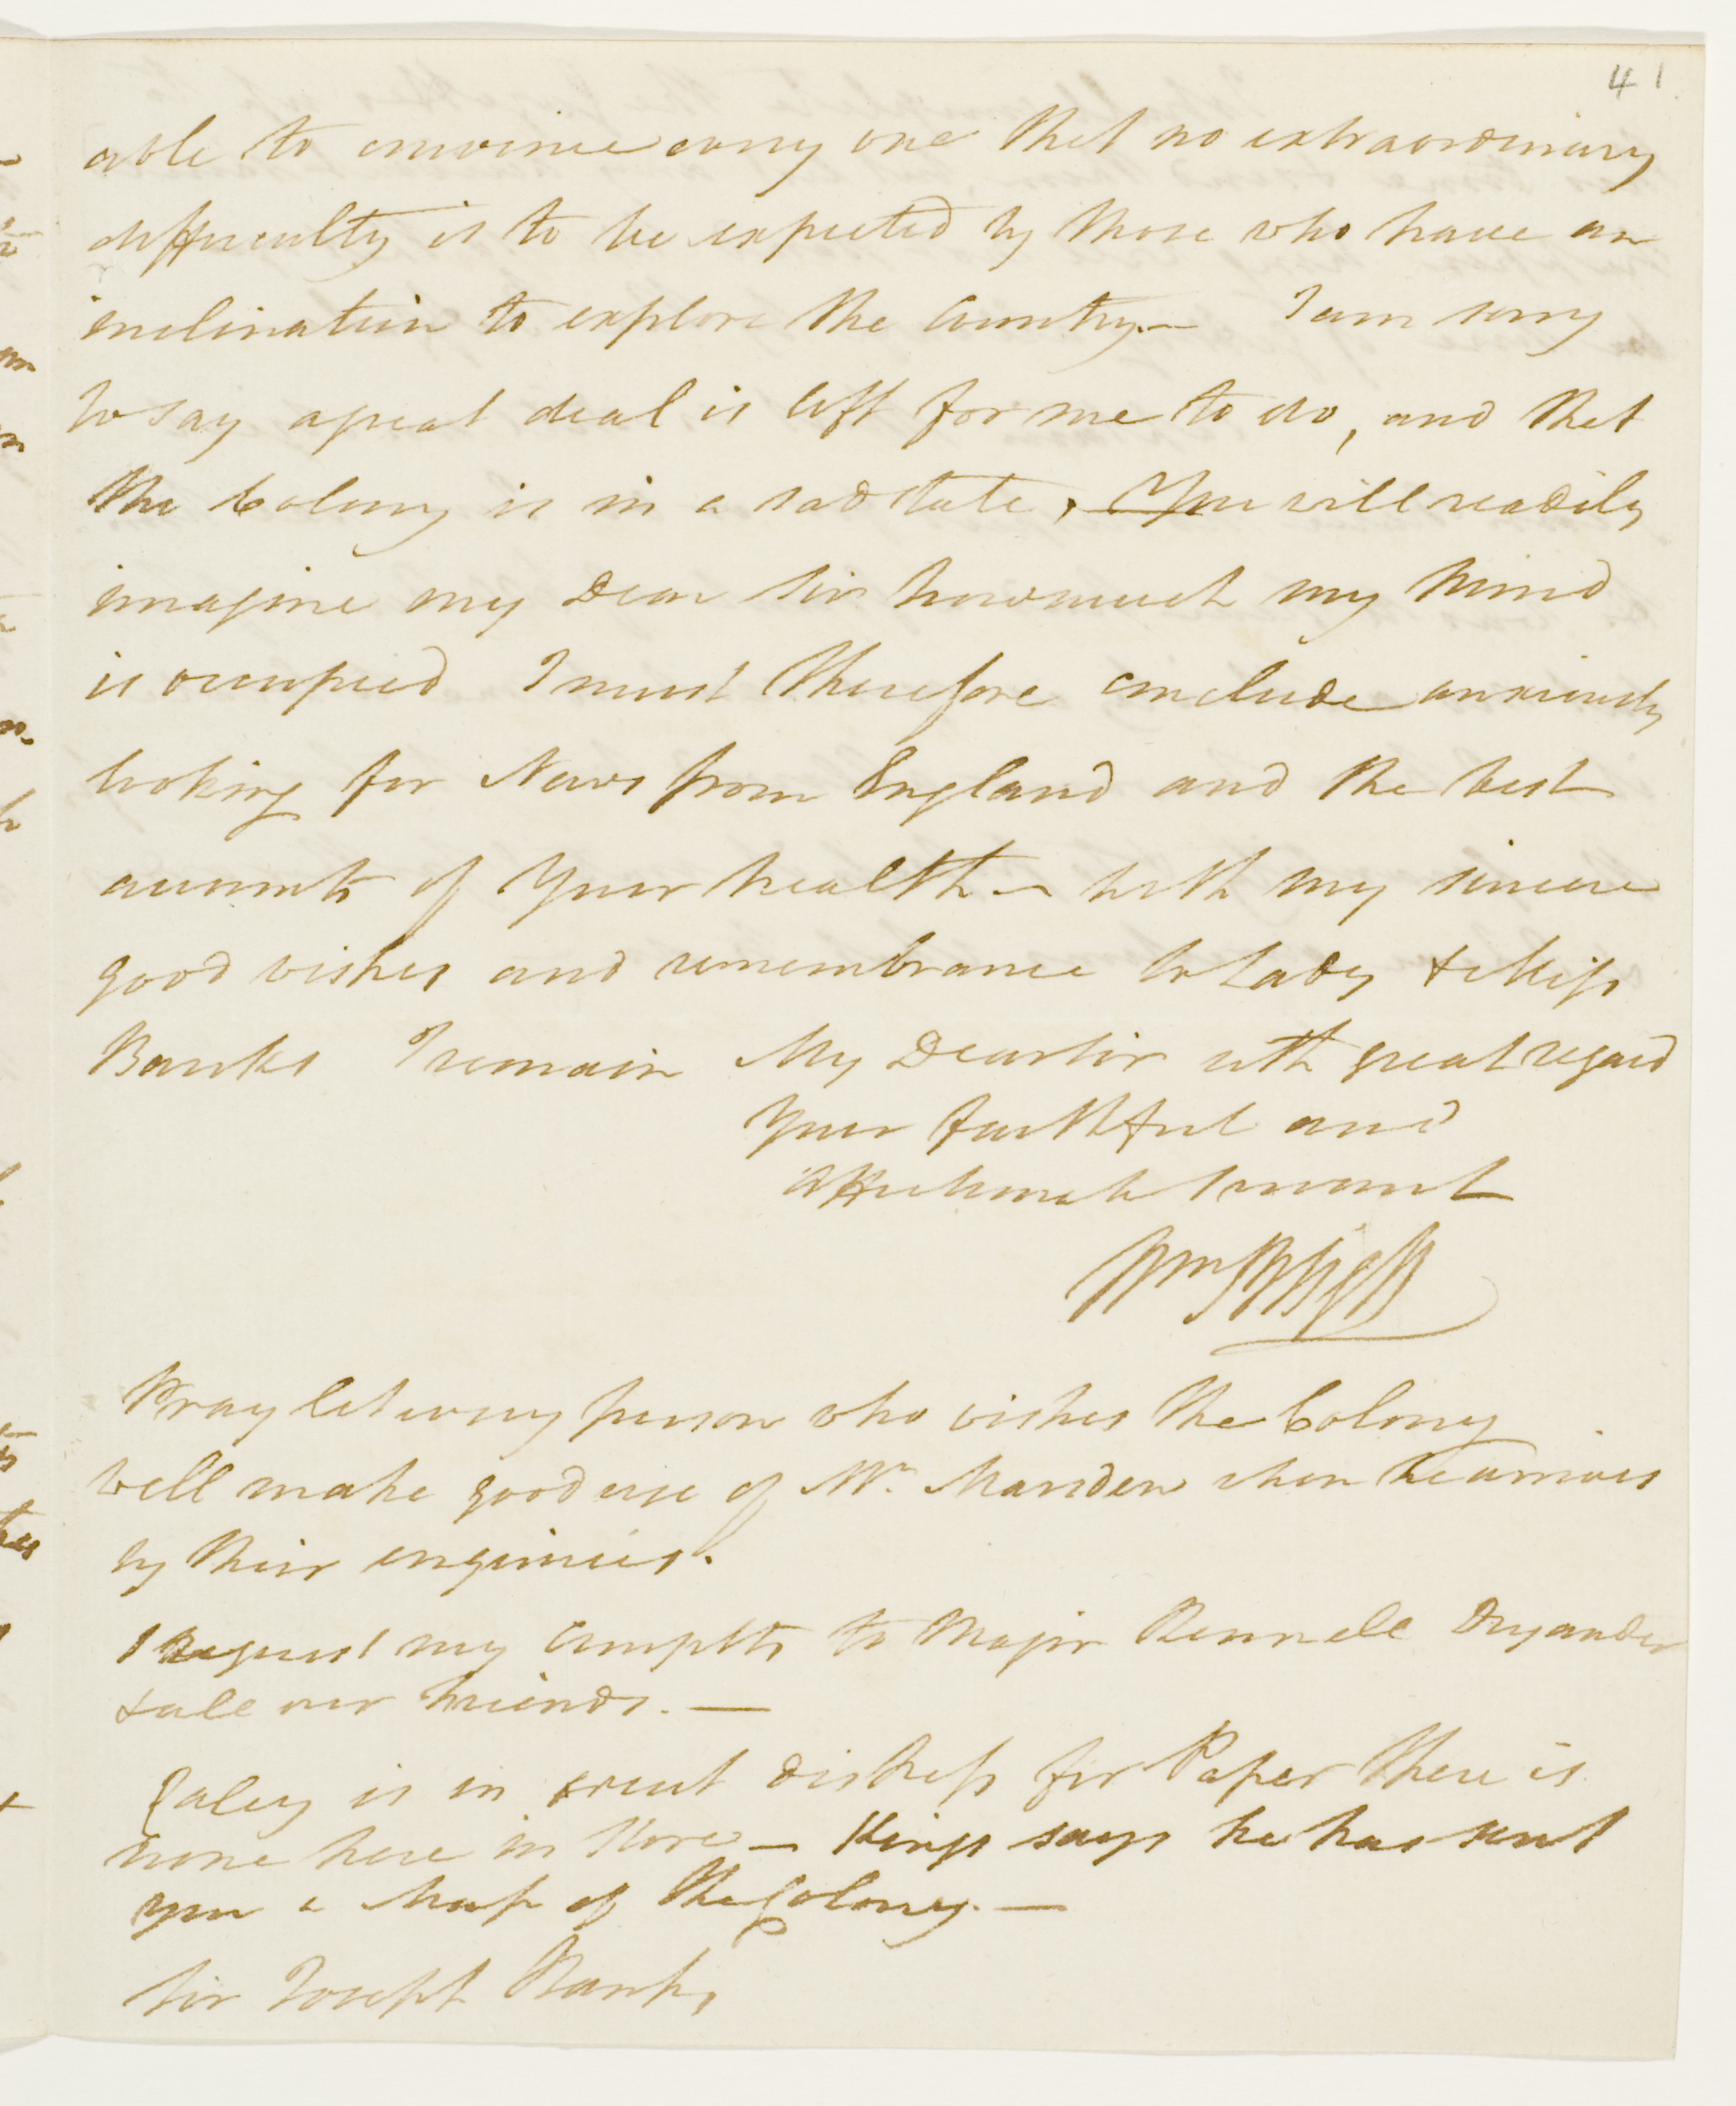 41
able to convince every one that no extraordinary
difficulty is to be expected by those who have an
inclination to explore the Country.— I am sorry
to say a great deal is left for me to do, and that
the Colony is in a sad state, You will readily
imagine my Dear Sir how much my Mind
is occupied I must therefore conclude anxiously
looking for News from England and the best
accounts of Your health — with my sincere
good wishes and remembrance to Lady & Miss
Banks I remain My Dear Sir with great regard
Your faithful and
Affectionate Servant
Wm Bligh
Pray let every person who wishes the Colony
well make good use of Mr. Marsden when he arrives
by their enquiries.
I Request my Complts to Major Rennell Dryander
& all our friends. —
Caley is in great distress for Paper there is
none here in Store — King says he has sent
you a Map of the Colony. —
Sir Joseph Banks